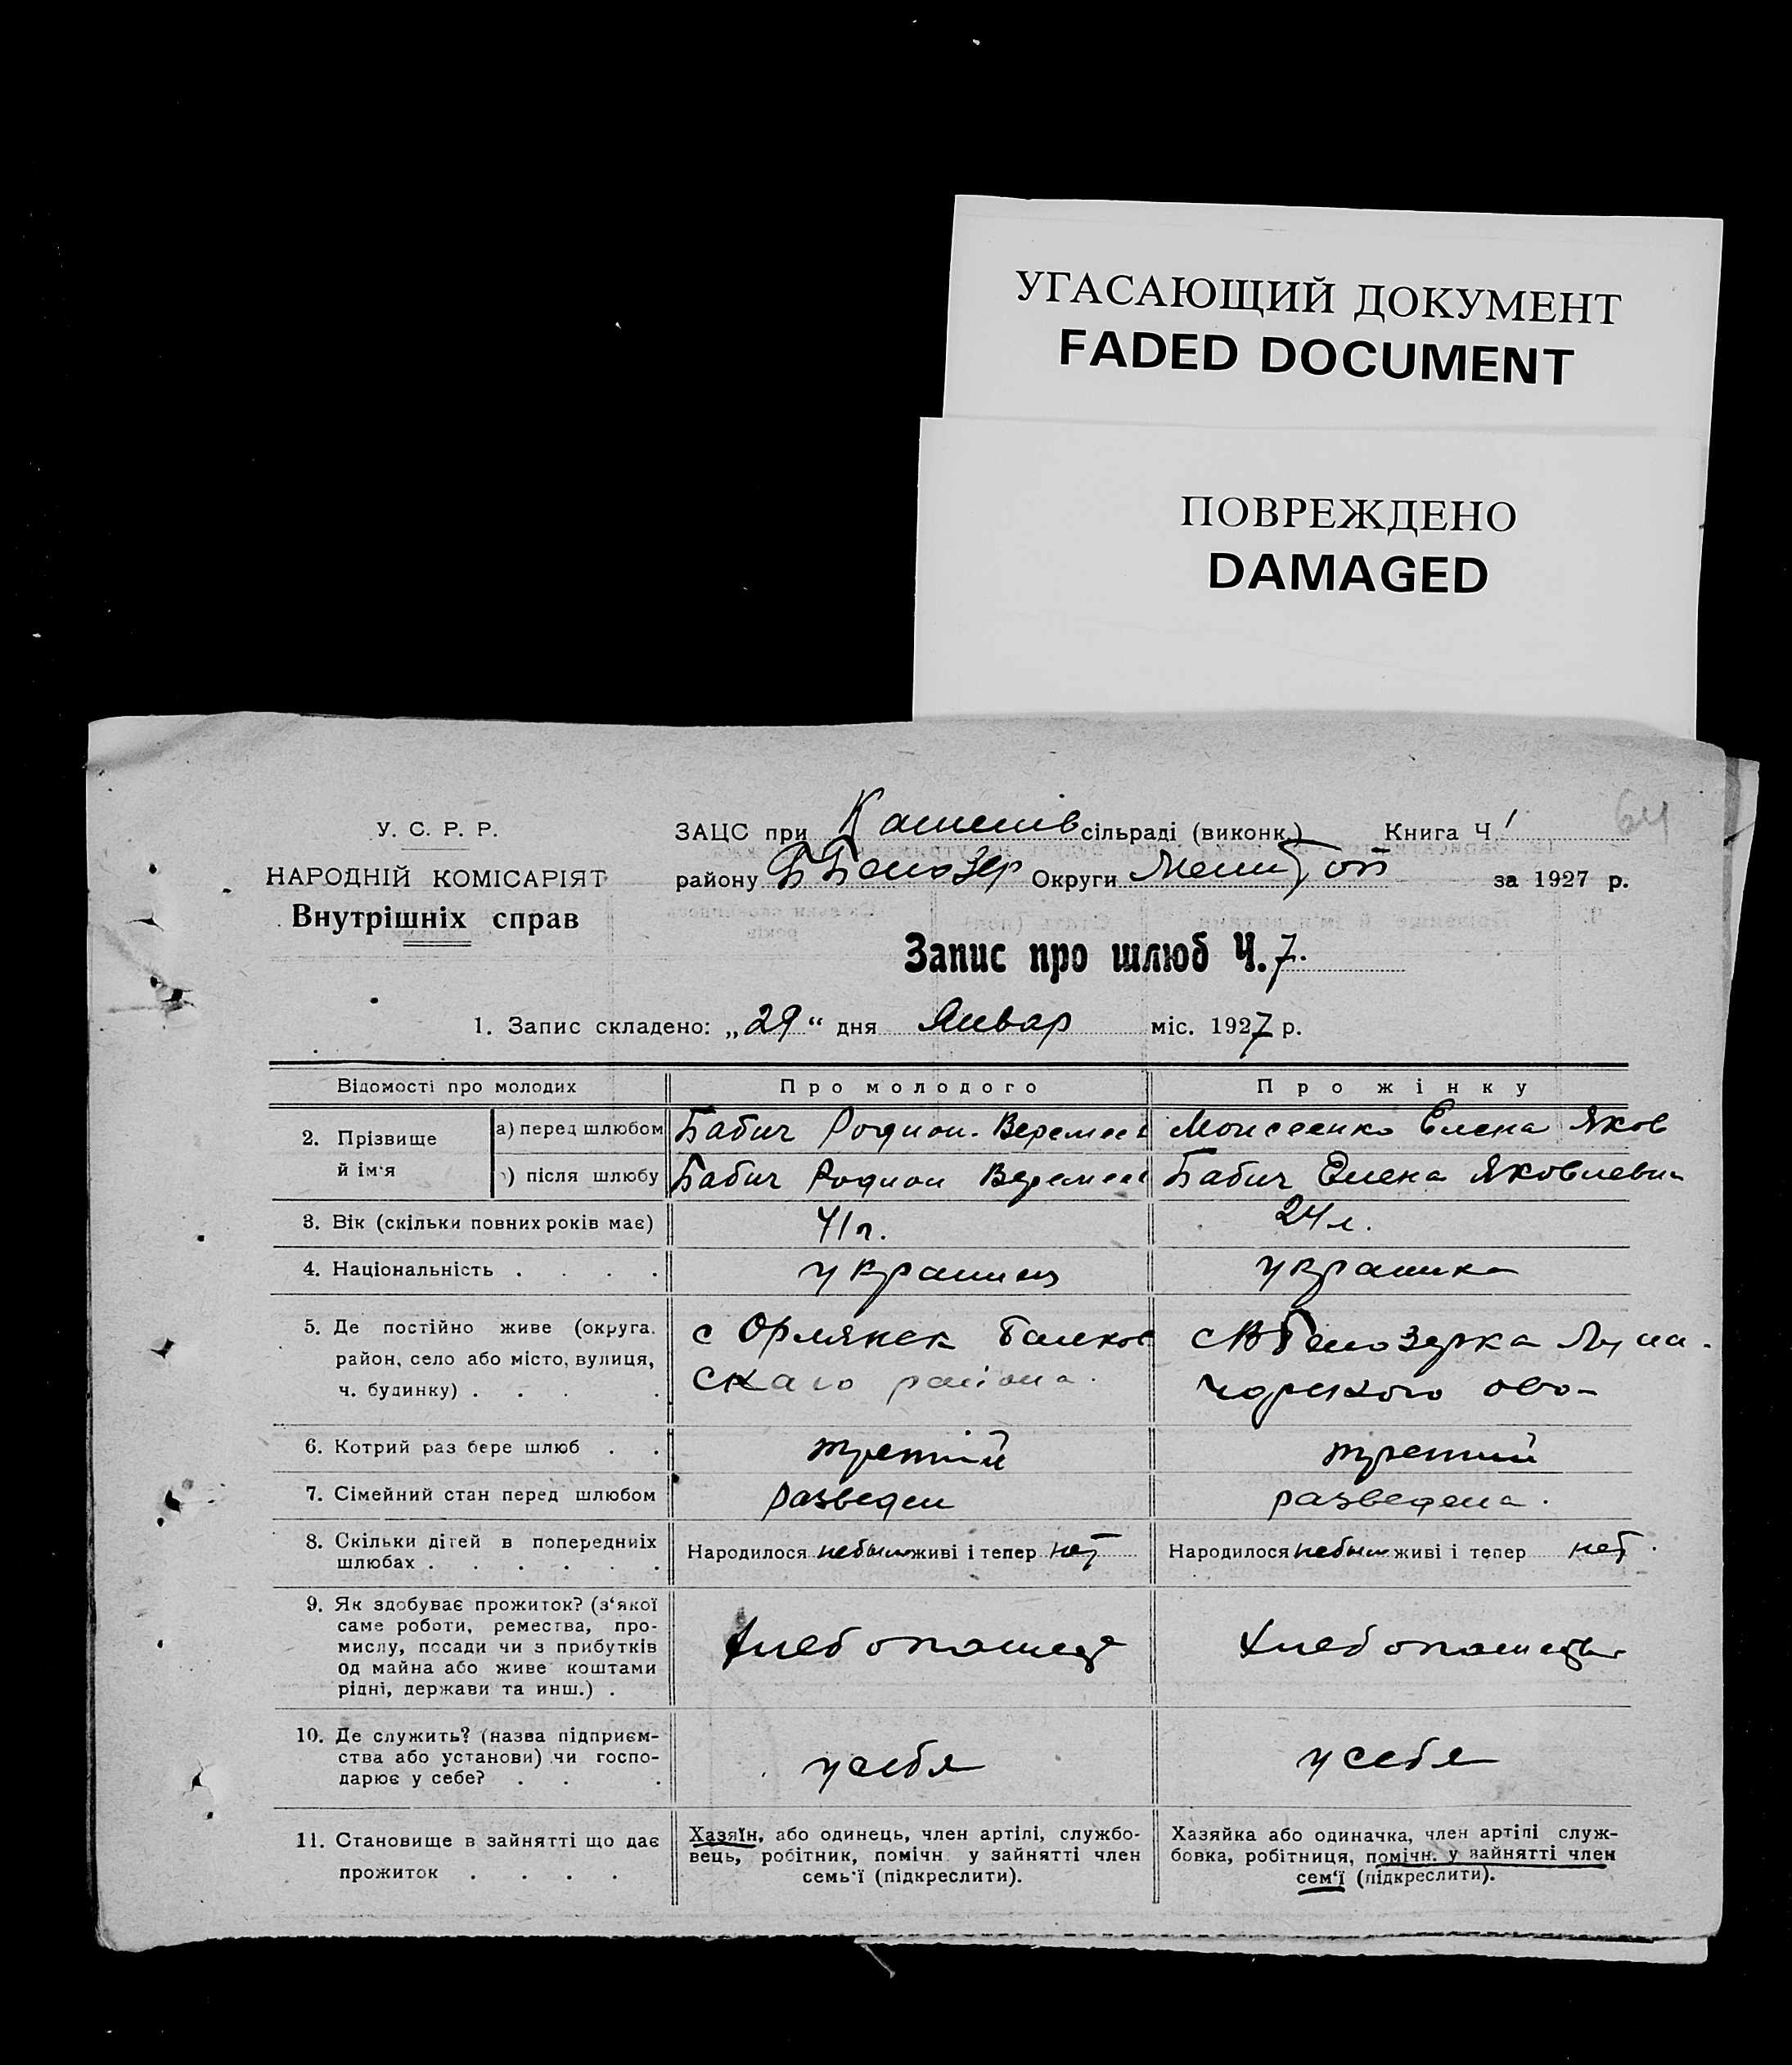 УГАСАЮЩИЙ ДОКУМЕНТ
FADED DOCUMENT
ПОВРЕЖДЕНО
DAMAGED
64
У. С. Р. Р.
НАРОДНІЙ КОМІСАРІЯТ
Внутрішніх справ
ЗАЦС при сільраді (виконк.) Книга Ч 1
району Б Белозер Округи Мелитоп за 1927 р.
Запис про шлюб Ч. 7.
1. Запис складено: „29“ дня Январ міс. 1927 р.
Відомості про молодих
Про молодого
Про жінку
2. Прізвище й ім'я
а) перед шлюбом
Бабич Родион. Веремеев
Моисеенко Елена Яков
) після шлюбу
Бабич Родион Веремеев
Бабич Елена Яковлевна
3. Вік (скільки повних років має)
41 г.
24 л.
4. Національність . . . .
украинец
украинка
5. Де постійно живе (округа,
район, село або місто, вулиця,
ч. будинку) . . . .
с Орлянск Балков
скаго района.
с Белозерка
6. Котрий раз бере шлюб . .
третій
третий
7. Сімейний стан перед шлюбом
разведен
разведена.
8. Скільки дітей в попередниіх
шлюбах . . . . . .
Народилося небыли живі і тепер нет
Народилося небыли живі і тепер нет.
9. Як здобуває прожиток? (з'якої
саме роботи, ремества, про-
мислу, посади чи з прибутків
од майна або живе коштами
рідні, держави та инш.) .
хлебопашец
хлебопашеств
10. Де служить? (назва підприєм-
ства або установи) чи госпо-
дарює у себе? . . .
у себя
у себя
11. Становище в зайнятті що дає
прожиток . . . .
Хазяїн, або одинець, член артілі, службо-
вець, робітник, помічн. у зайнятті член
семь'ї (підкреслити).
Хазяйка або одиначка, член артілі служ-
бовка, робітниця, помічн. у зайнятті член
сем'ї (підкреслити).